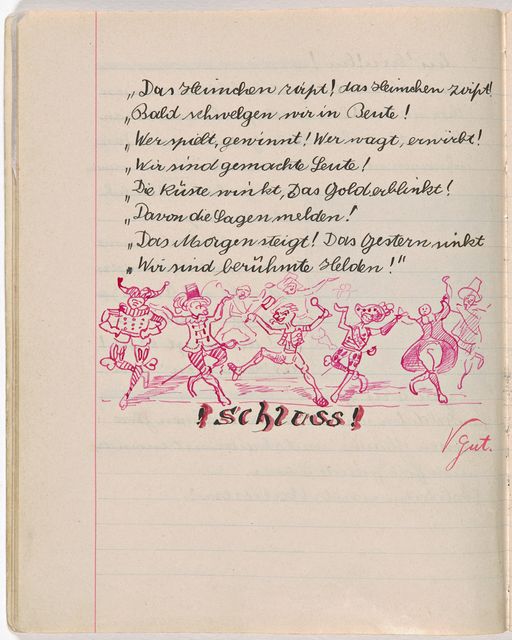 „Das Heimchen zirpt! das Heimchen zirpt!
„Bald schwelgen wir in Beute!
„Wer spielt, gewinnt! Wer wagt, erwirbt!
„Wir sind gemachte Leute!
„Die Küste winkt, Das Gold erblinkt!
„Davon die Sagen melden!
„Das Morgen steigt! Das Gestern sinkt
„Wir sind berühmte Helden!"
! Schluss !
gut.